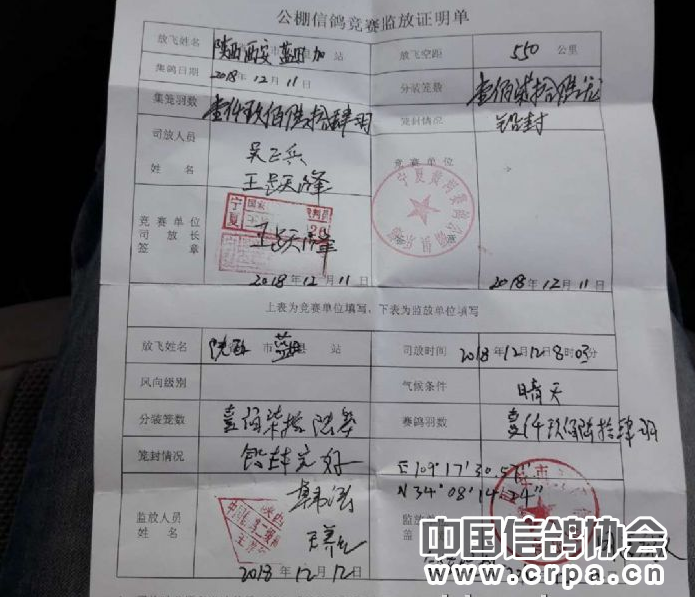 公棚信鸽竞赛监放证明单
放飞姓名 陕西西安蓝田 站 放飞空距 550 公里
集鸽日期 2018年12月11日 分装笼数
集笼羽数 壹仟玖佰陆拾肆羽 笼封情况 铅封
司放人员 姓名 吴正兵
竞赛单位
竞赛单位 司放长 签章
宁夏
2018年12月11日 2018年12月11日
上表为竞赛单位填写、下表为监放单位填写
放飞姓名 陕西 市 蓝田 县 站 司放时间 2018年12月12日8时03分
风向级别 气候条件 晴天
分装笼数 壹佰柒拾陆笼 赛鸽羽数 壹仟玖佰陆拾肆羽
笼封情况 铅封完好 E109°17'30.57"
N34°08'14.24"
监放人员 姓名 监放
陕西
2018年12月12日
中国信鸽协会
www.crpa.cn